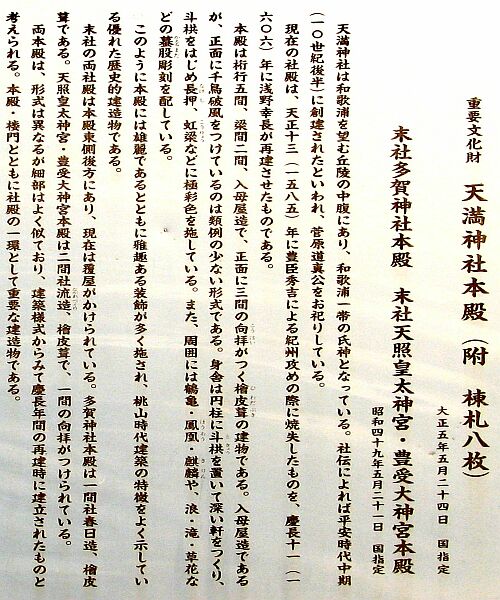 重要文化財 天満神社本殿（附 棟札八枚）
大正五年五月二十四日 国指定
末社多賀神社本殿 末社天照皇太神宮・豊受大神宮本殿
昭和四十九年五月二十一日 国指定
天満神社は和歌浦を望む丘陵の中腹にあり、和歌浦一帯の氏神となっている。社伝によれば平安時代中期
（一〇世紀後半）に創建されたといわれ、菅原道真公をお祀りしている。
現在の社殿は、天正十三（一五八五）年に豊臣秀吉による紀州攻めの際に焼失したものを、慶長十一（一
六〇六）年に浅野幸長が再建させたものである。
本殿は桁行五間、梁間二間、入母屋造で、正面に三間の向拝がつく檜皮葺の建物である。入母屋造である
が、正面に千鳥破風をつけているのは類例の少ない形式である。身舎は円柱に斗栱を置いて深い軒をつくり、
斗栱をはじめ長押、虹梁などに極彩色を施している。また、周囲には鶴亀・鳳凰・麒麟や、浪・滝・草花な
どの蟇股彫刻を配している。
このように本殿には雄麗であるとともに雅趣ある装飾が多く施され、桃山時代建築の特徴をよく示してい
る優れた歴史的建造物である。
末社の両社殿は本殿東側後方にあり、現在は覆屋がかけられている。多賀神社本殿は一間社春日造、檜皮
葺である。天照皇太神宮・豊受大神宮本殿は二間社流造、檜皮葺で、一間の向拝がつけられている。
両本殿は、形式は異なるが細部はよく似ており、建築様式からみて慶長年間の再建時に建立されたものと
考えられる。本殿・楼門とともに社殿の一環として重要な建造物である。